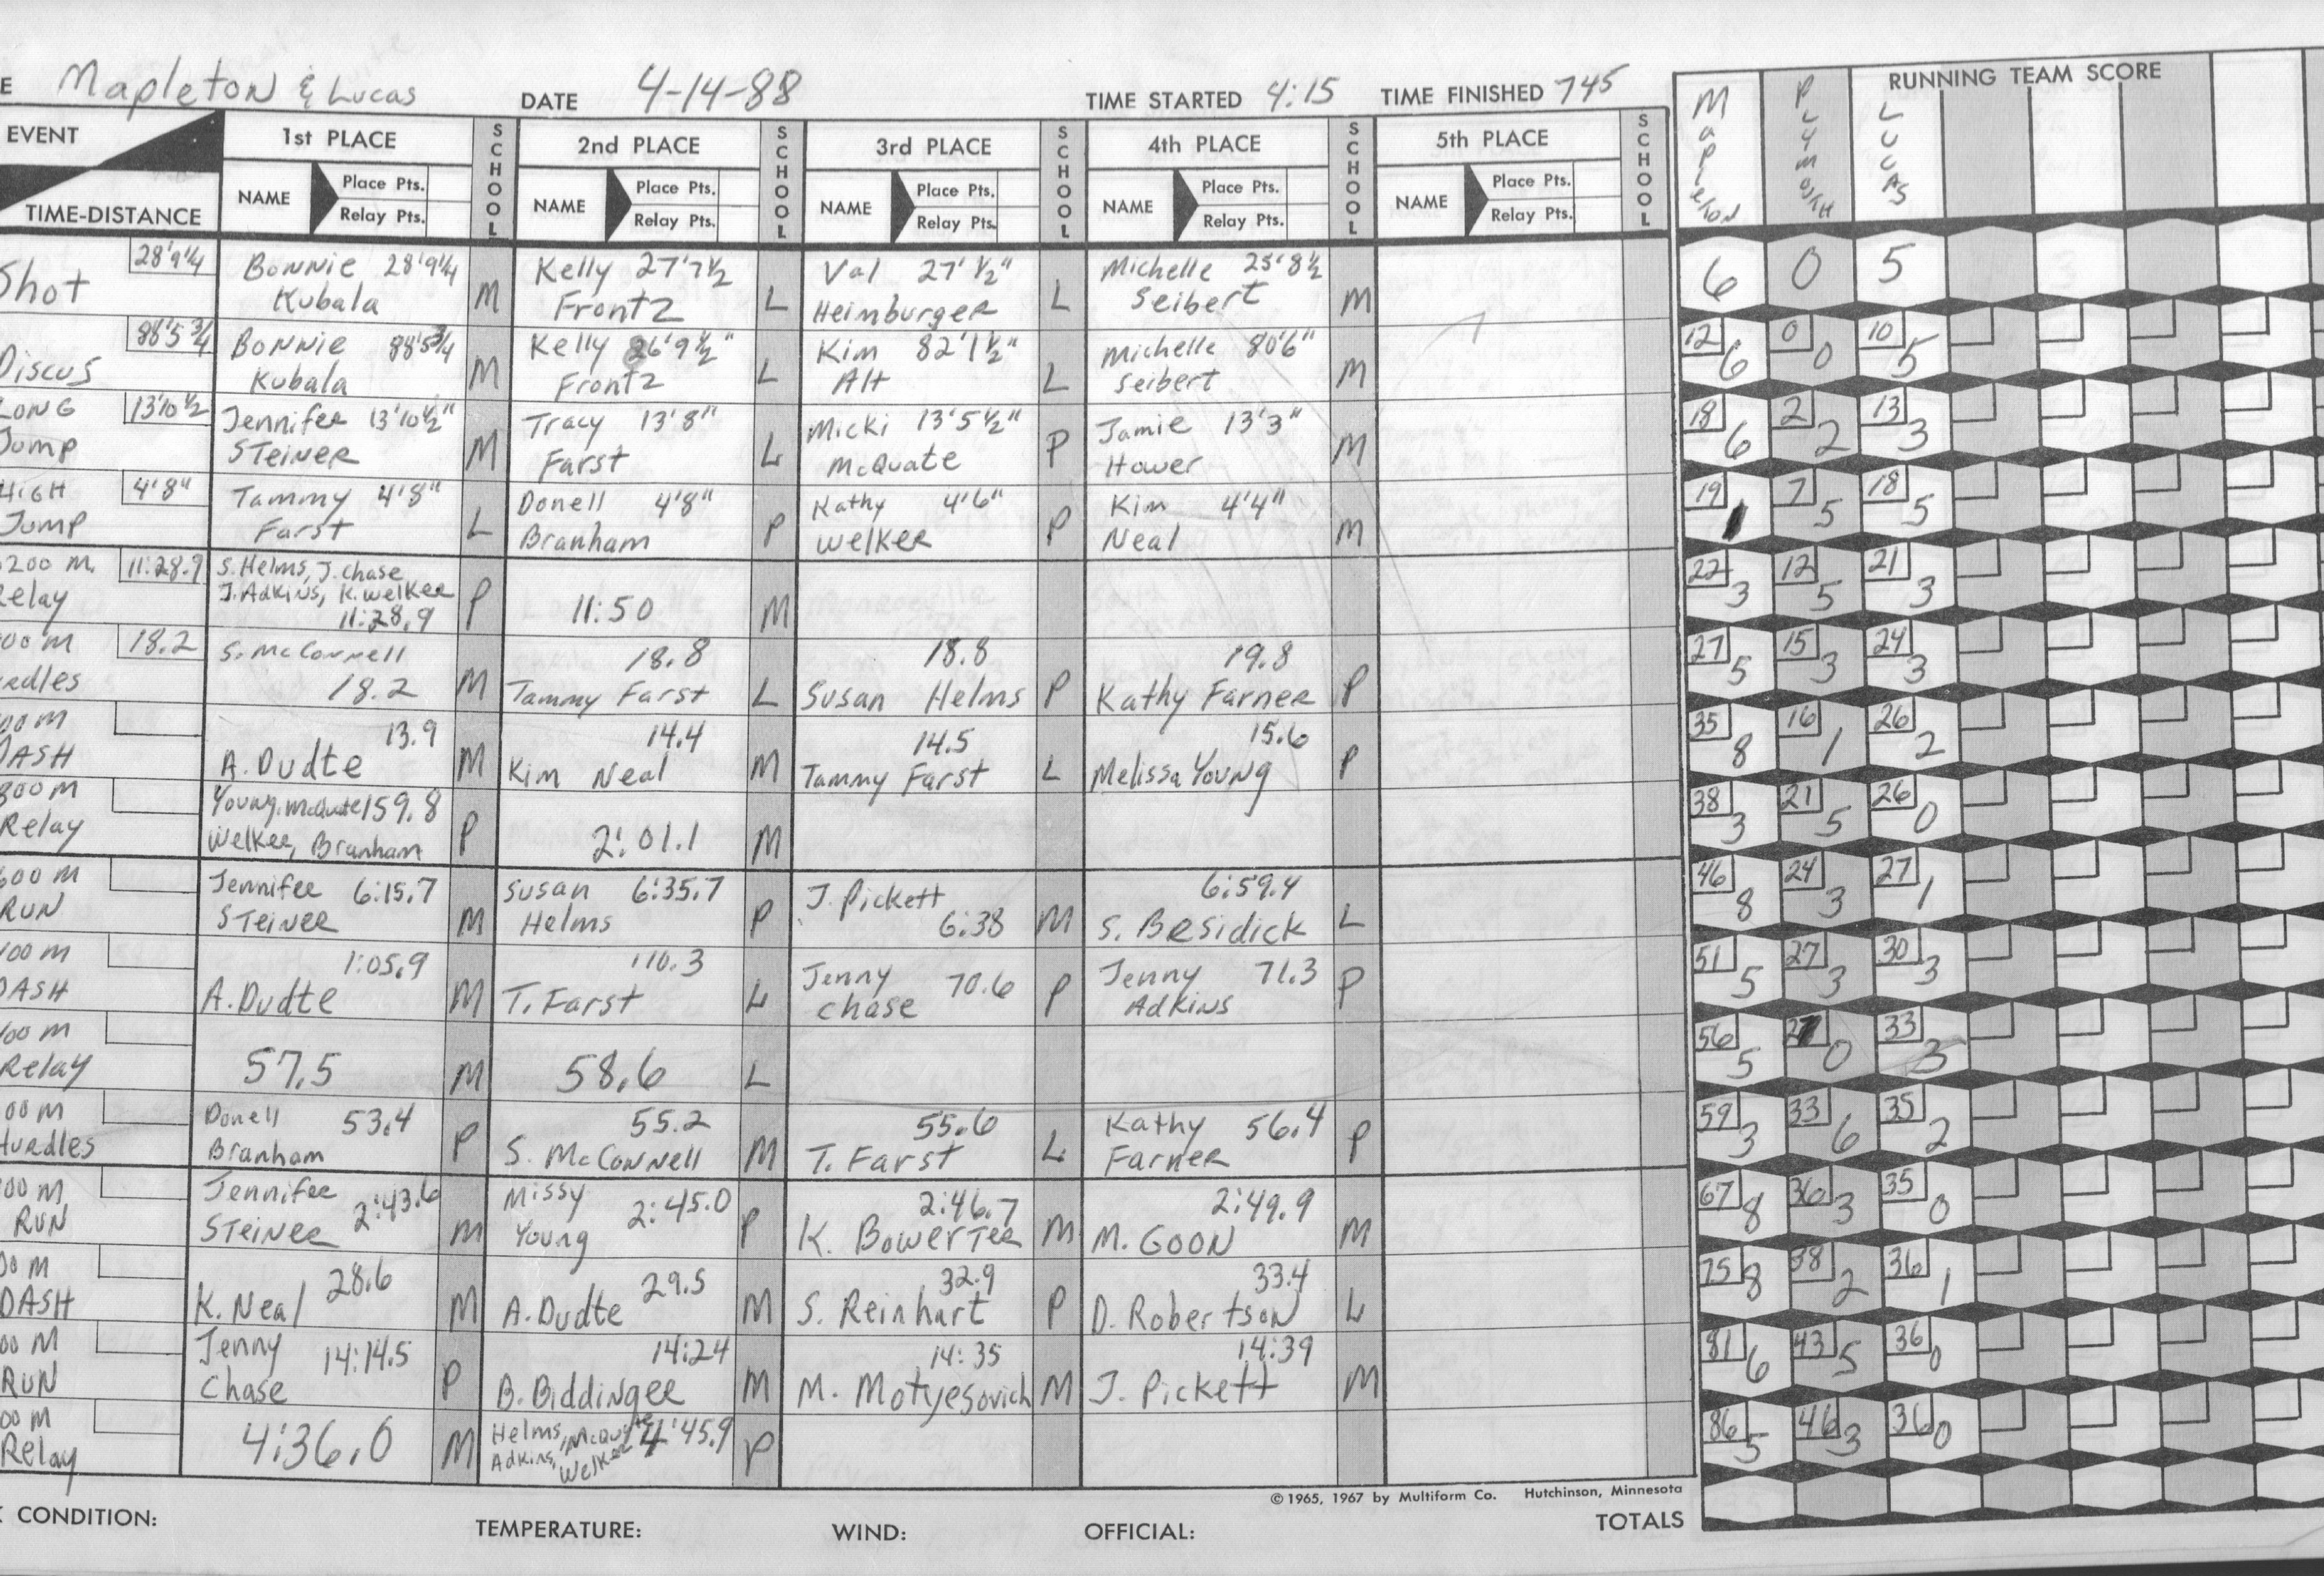 E Mapleton & Lucas DATE 4-14-88 TIME STARTED 4:15 TIME FINISHED 745
RUNNING TEAM SCORE
Mapleton Plymouth Lucas
EVENT 1st PLACE SCHOOL 2nd PLACE SCHOOL 3rd PLACE SCHOOL 4th PLACE SCHOOL 5th PLACE SCHOOL
TIME-DISTANCE NAME Place Pts. Relay Pts. NAME Place Pts. Relay Pts. NAME Place Pts. Relay Pts. NAME Place Pts. Relay Pts. NAME Place Pts. Relay Pts.
28'9¼ Bonnie 28'9¼ Kelly 27'7½ Val 27'½" Michelle 25'8½
Shot Kubala M Frontz L Heimburger L Seibert M 6 0 5
88'5¾ Bonnie 88'5¾ Kelly 86'9½" Kim 82'1½" Michelle 80'6" 12 0 10
Discus Kubala M Frontz L Alt L Seibert M 6 0 5
LONG 13'10½ Jennifer 13'10½" Tracy 13'8" Micki 13'5½" Jamie 13'3" 18 2 13
Jump STeiner M Farst L McQuate P Hower M 6 2 3
HIGH 4'8" Tammy 4'8" Donell 4'8" Kathy 4'6" Kim 4'4" 19 7 18
Jump Farst L Branham P Welker P Neal M 1 5 5
200 M. 11:28.9 S. Helms, J. Chase 22 12 21
Relay J. Adkins, K. Welker P 11:50 M 3 5 3
11:28.9
00 M 18.2 S. McConnell 18.8 18.8 19.8 27 15 24
rdles 18.2 M Tammy Farst L Susan Helms P Kathy Farner P 5 3 3
00 M 13.9 14.4 14.5 15.6 35 16 26
DASH A. Dudte M Kim Neal M Tammy Farst L Melissa Young P 8 1 2
800 M Young, McQuate 159.8 38 21 26
Relay Welker, Branham P 2:01.1 M 3 5 0
600 M Jennifer 6:15.7 Susan 6:35.7 J. Pickett 6:59.4 46 24 27
RUN STeiner M Helms P 6:38 M S. Besidick L 8 3 1
400 M 1:05.9 110.3 Jenny 70.6 Jenny 71.3 51 27 30
DASH A. Dudte M T. Farst L Chase P Adkins P 5 3 3
400 M 56 27 33
Relay 57.5 M 58.6 L 5 0 3
00 M Donell 53.4 55.2 55.6 Kathy 56.4 59 33 35
Hurdles Branham P S. McConnell M T. Farst L Farner P 3 6 2
00 M Jennifer 2:43.6 Missy 2:45.0 2:46.7 2:49.9 67 36 35
RUN STeiner M Young P K. Bowertee M M. Goon M 8 3 0
00 M 28.6 29.5 32.9 33.4 75 38 36
DASH K. Neal M A. Dudte M S. Reinhart P D. Robertson L 8 2 1
00 M Jenny 14:14.5 14:24 14:35 14:39 81 43 36
RUN Chase P B. Biddinger M M. Motyesovich M J. Pickett M 6 5 0
00 M Helms, McQuate 4:45.9 86 46 36
Relay 4:36.0 M Adkins, Welker P 5 3 0
© 1965, 1967 by Multiform Co. Hutchinson, Minnesota
CONDITION: TEMPERATURE: WIND: OFFICIAL: TOTALS